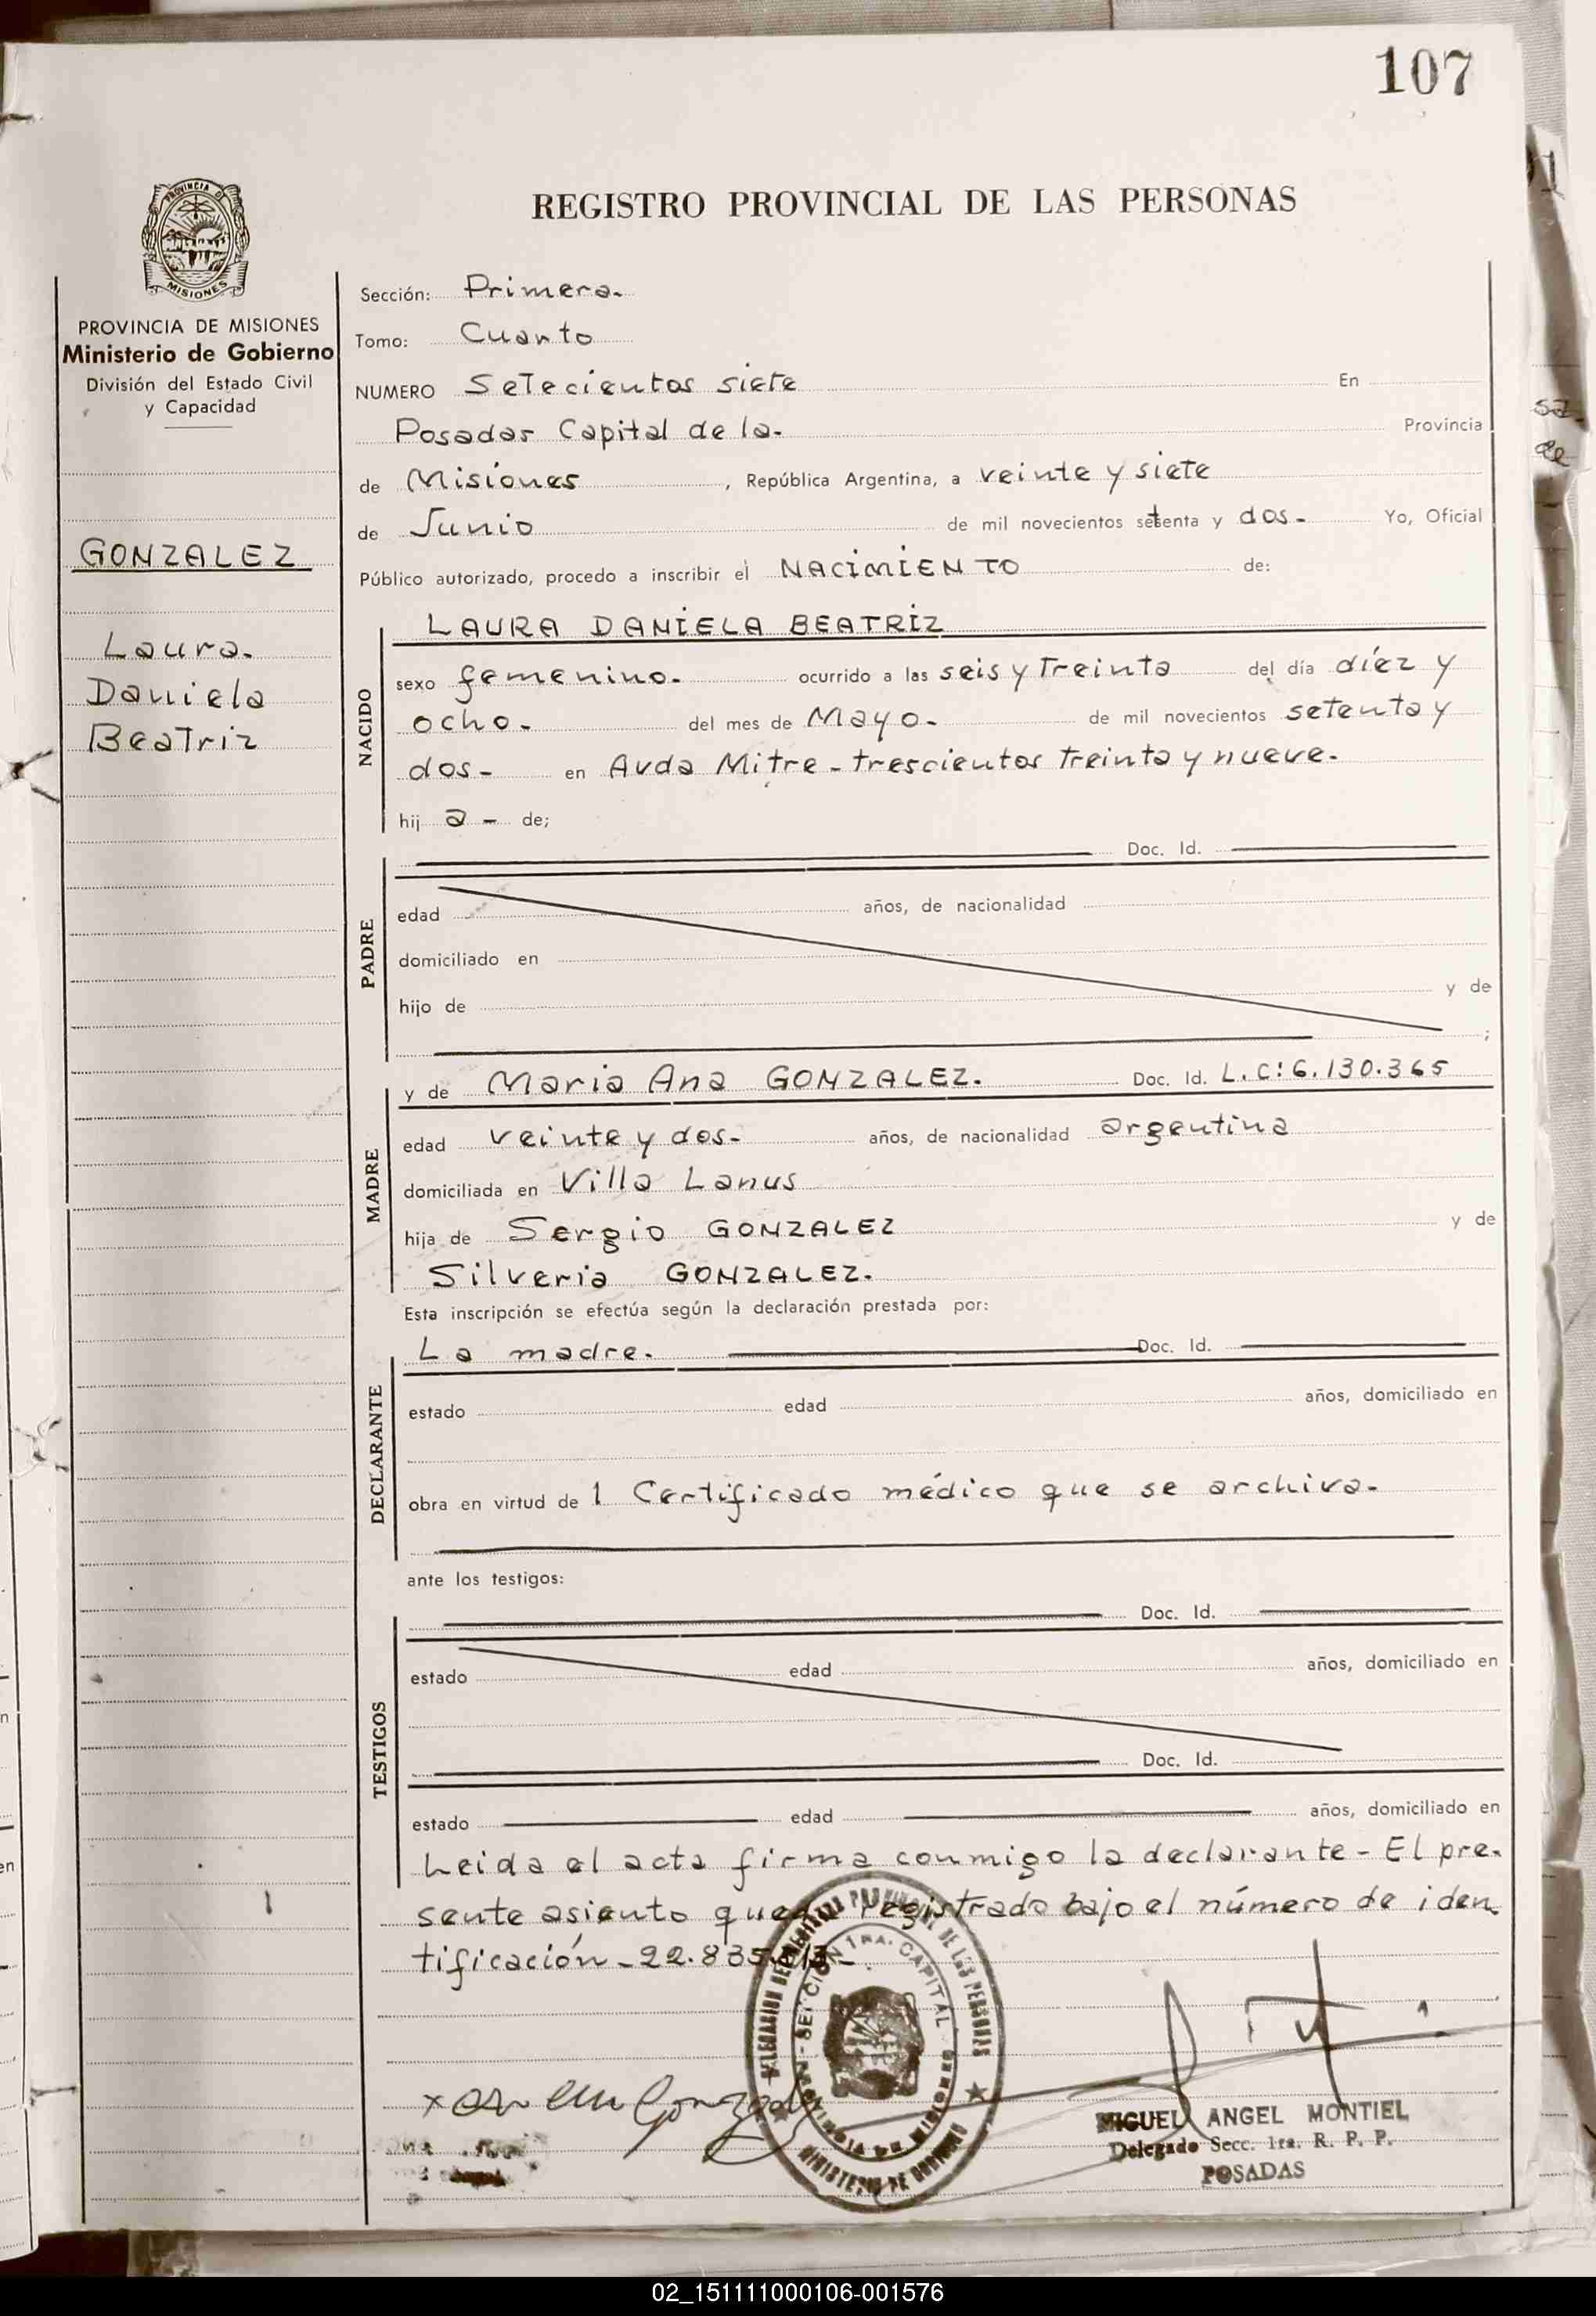 107
PROVINCIA DE
MISIONES
REGISTRO PROVINCIAL DE LAS PERSONAS
PROVINCIA DE MISIONES
Ministerio de Gobierno
División del Estado Civil
y Capacidad
GONZALEZ
Laura.
Daniela
Beatriz
Sección: Primera.
Tomo: Cuarto
NUMERO Setecientos siete En
Posadas Capital de la. Provincia
de Misiones, República Argentina, a veinte y siete
de Junio de mil novecientos setenta y dos- Yo, Oficial
Público autorizado, procedo a inscribir el NACIMIENTO de:
NACIDO
LAURA DANIELA BEATRIZ
sexo femenino. ocurrido a las seis y Treinta del día díez y
ocho. del mes de Mayo. de mil novecientos setenta y
dos- en Avda Mitre - trescientos Treinta y nueve.
hij a - de;
PADRE
Doc. Id.
edad años, de nacionalidad
domiciliado en
hijo de y de
;
MADRE
y de Maria Ana GONZALEZ. Doc. Id. L.C: 6.130.365
edad veinte y dos- años, de nacionalidad argentina
domiciliada en Villa Lanus
hija de Sergio GONZALEZ y de
Silveria GONZALEZ.
Esta inscripción se efectúa según la declaración prestada por:
DECLARANTE
La madre. Doc. Id.
estado edad años, domiciliado en
obra en virtud de 1 Certificado médico que se archiva.
ante los testigos:
TESTIGOS
Doc. Id.
estado edad años, domiciliado en
Doc. Id.
estado edad años, domiciliado en
Leida el acta firma conmigo la declarante - El pre.
sente asiento queda registrado bajo el número de iden
tificación - 22.835.
SECCION 1RA. CAPITAL
PROVINCIA DE MISIONES
MINISTERIO DE GOBIERNO
Gonzal
MIGUEL ANGEL MONTIEL
Delegado Secc. 1ra. R. P. P.
POSADAS
02_151111000106-001576